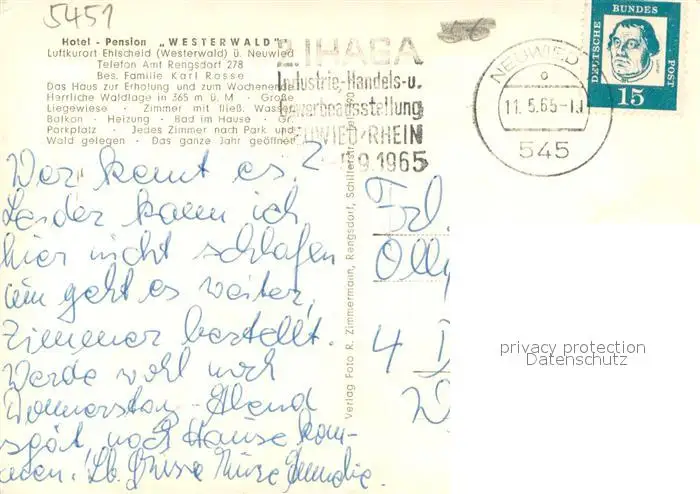 5451
56
Hotel - Pension „WESTERWALD"
Luftkurort Ehlscheid (Westerwald) ü. Neuwied
Telefon Amt Rengsdorf 278
Bes. Familie Karl Rosse
Das Haus zur Erholung und zum Wochenende
Herrliche Waldlage in 365 m ü. M - Große
Liegewiese - Zimmer mit fließ. Wasser
Balkon - Heizung - Bad im Hause - Gr.
Parkplatz - Jedes Zimmer nach Park und
Wald gelegen - Das ganze Jahr geöffnet
2. IHAGA
Industrie-Handels-u.
werbeausstellung
NEUWIED/RHEIN
9.1965
NEUWIED
11.5.65-1
545
DEUTSCHE BUNDES POST
15
Wer kennt es?
Leider kann ich
hier nicht schlafen
geht es weiter,
Zimmer bestellt.
Werde wohl noch
Donnerstag-Abend
spät nach Hause kom-
men. Lb. Grüsse
Verlag Foto R. Zimmermann, Rengsdorf,
Frl.
Olly
4
privacy protection
Datenschutz